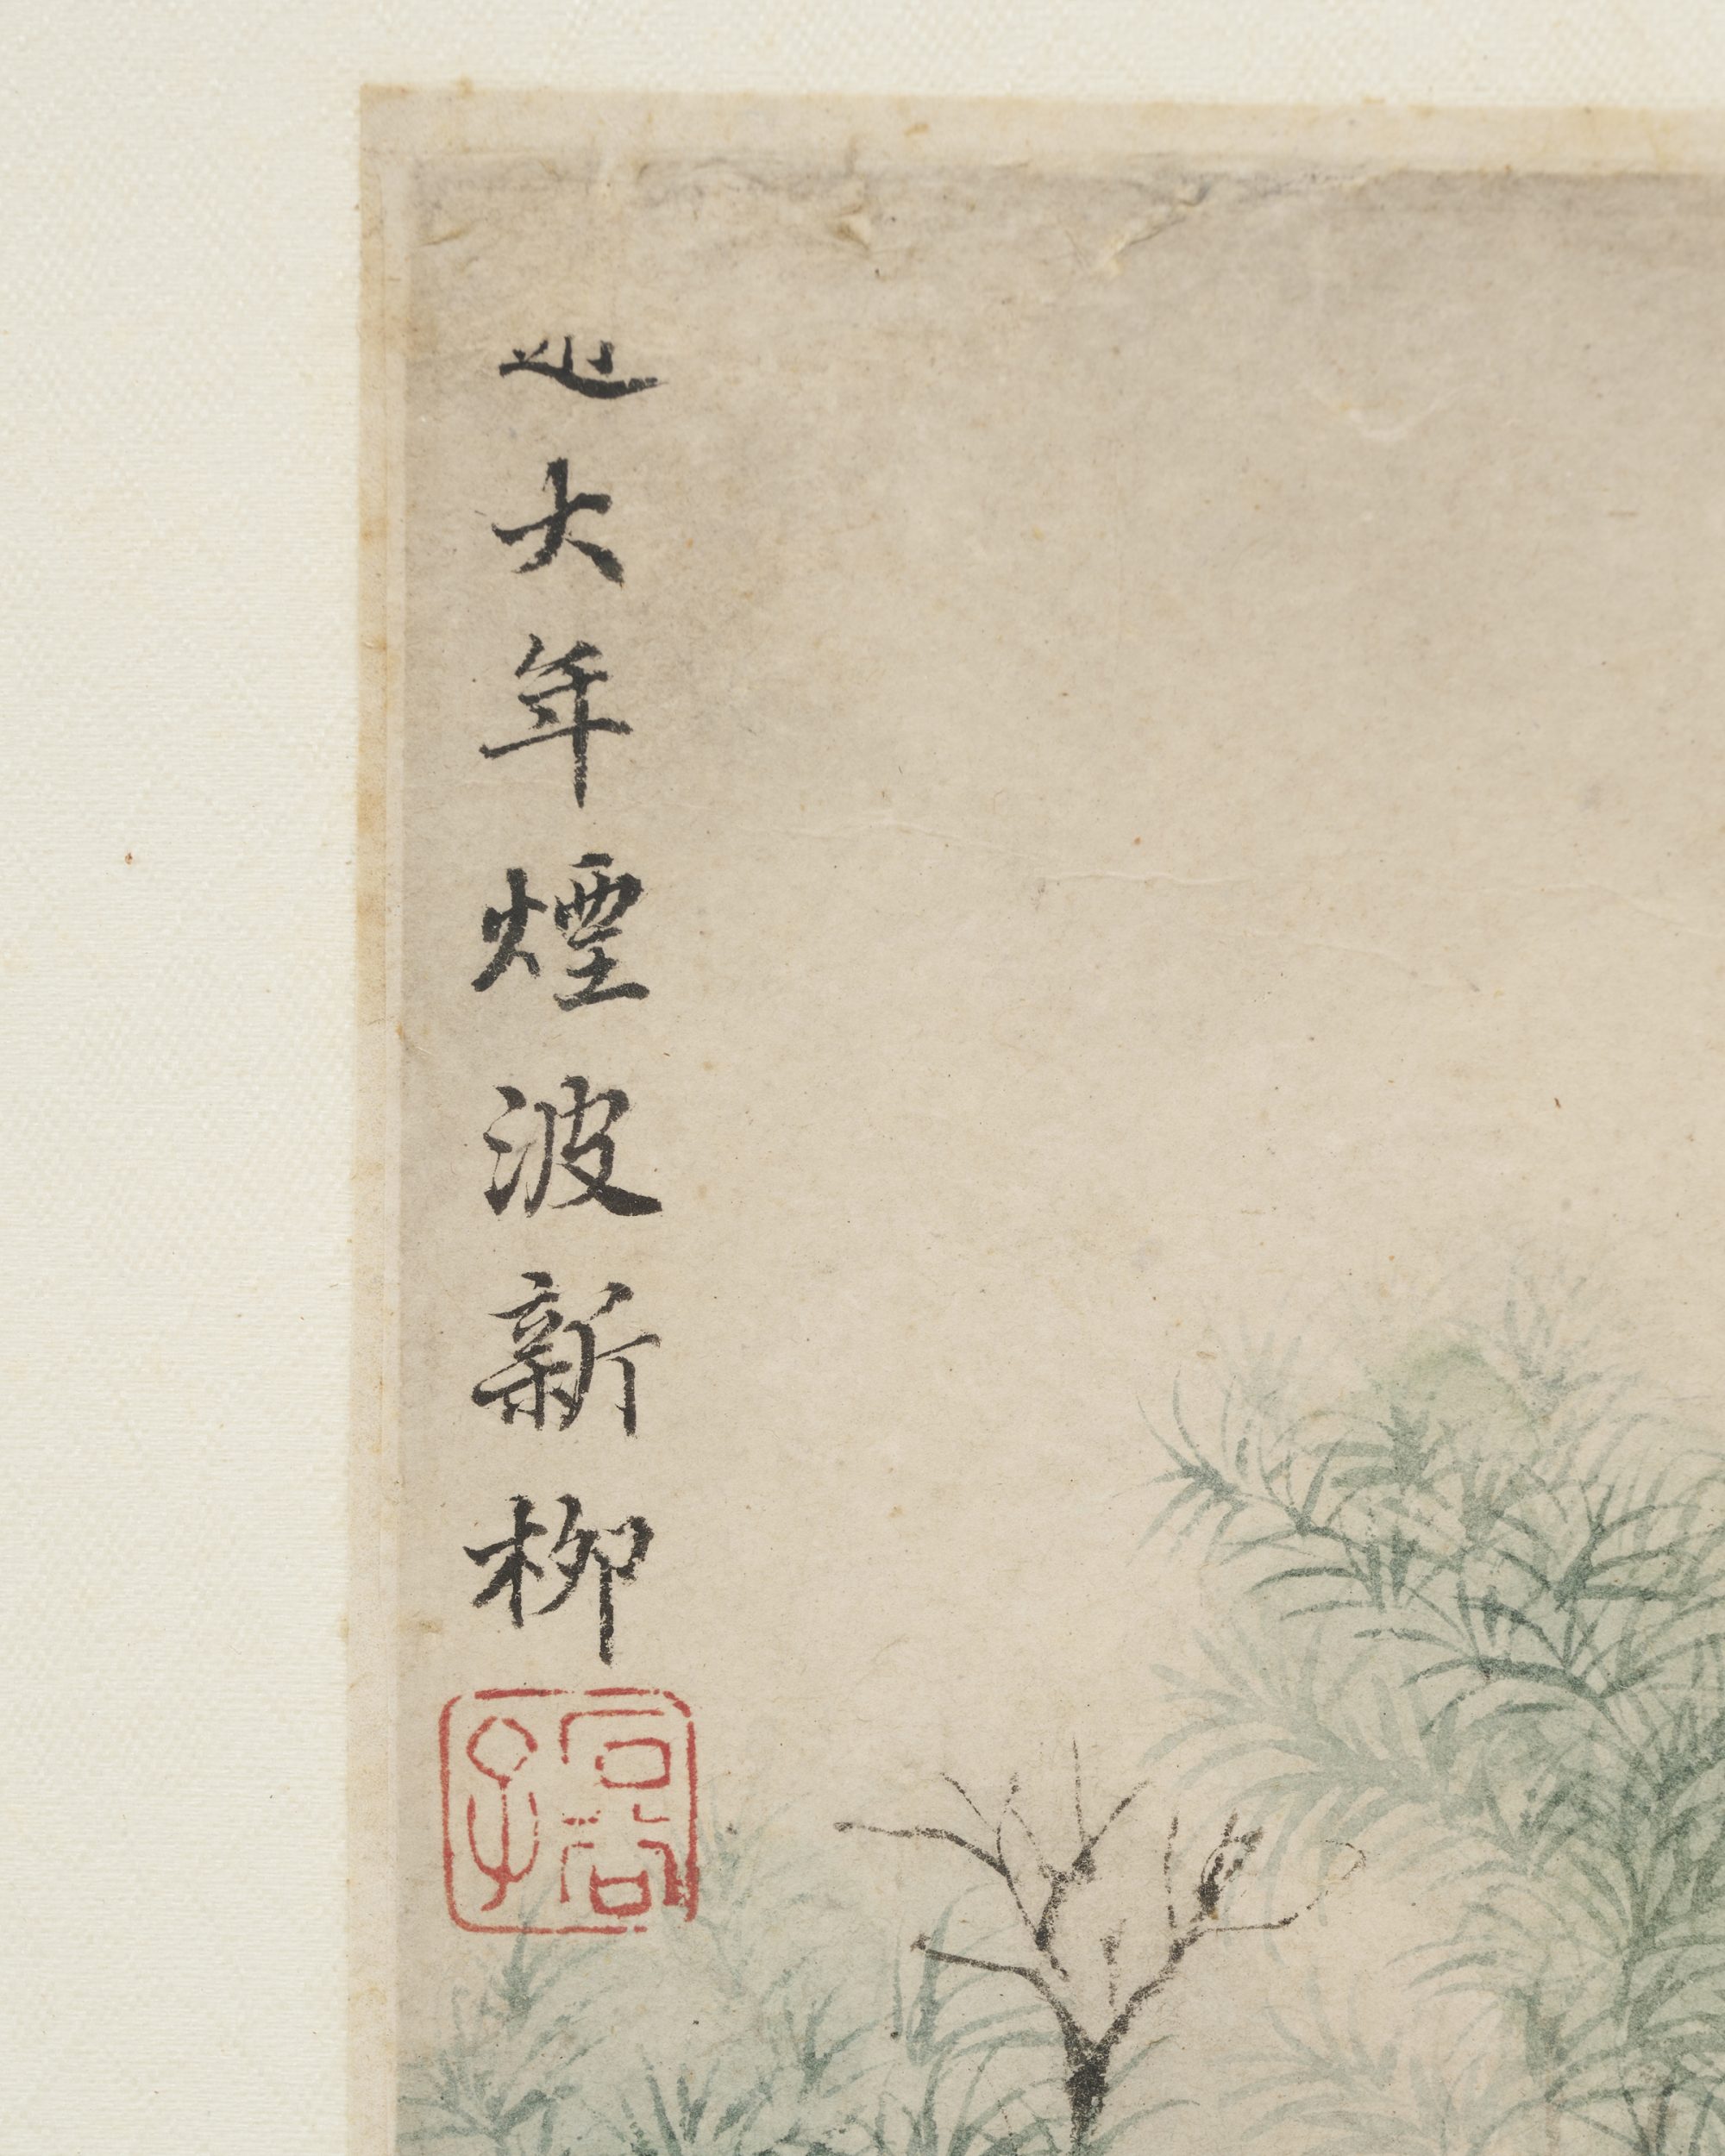 大年煙波新柳